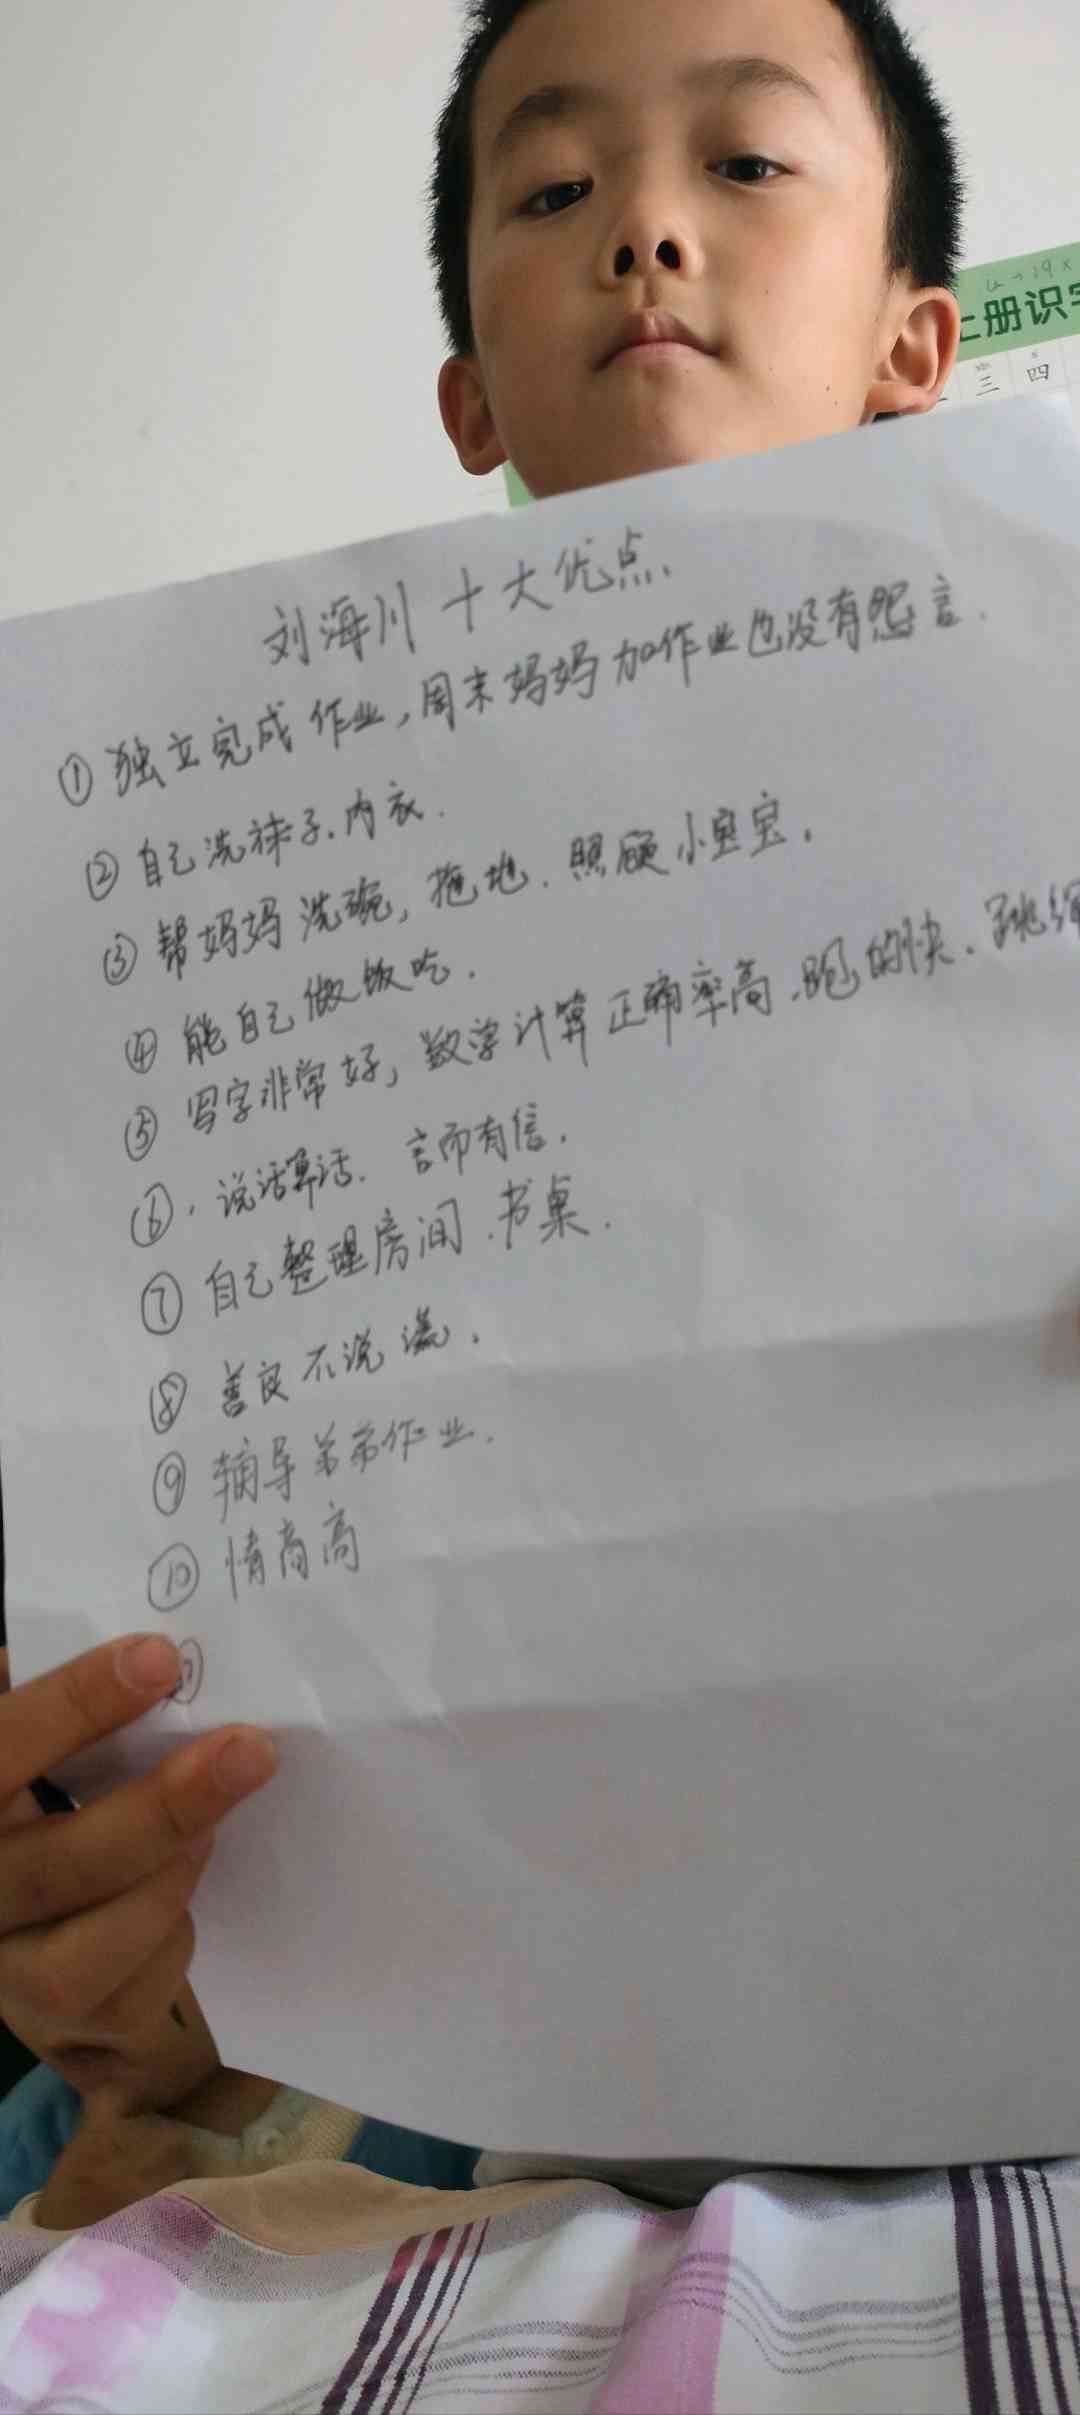 上册识字
三 四
刘海川十大优点.
① 独立完成作业,周末妈妈加作业也没有怨言.
② 自己洗袜子.内衣.
③ 帮妈妈洗碗,拖地.照顾小宝宝.
④ 能自己做饭吃.
⑤ 写字非常好,数学计算正确率高.跑的快.跳绳
⑥.说话算话.言而有信.
⑦ 自己整理房间.书桌.
⑧ 善良不说谎.
⑨ 辅导弟弟作业.
⑩ 情商高